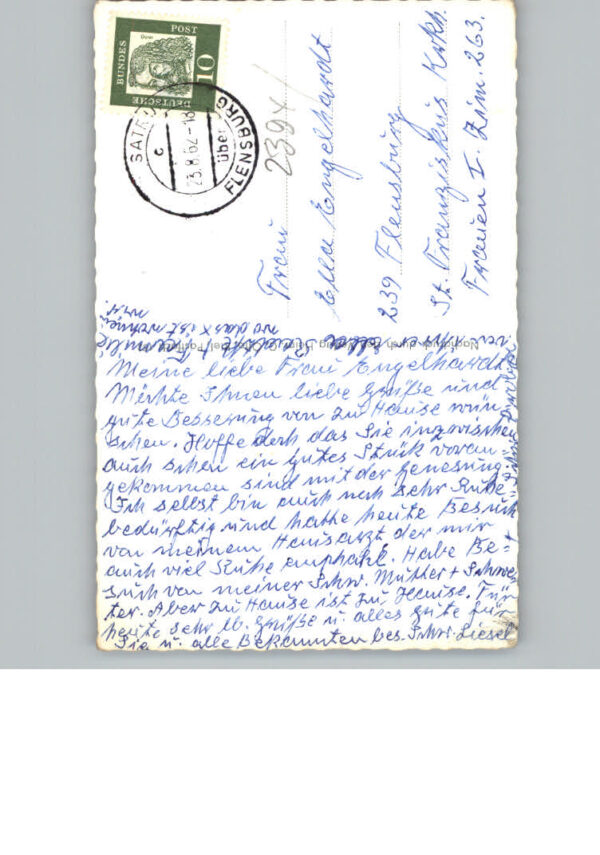 DEUTSCHE
BUNDES
POST
10
SATRU
über
FLENSBURG
c
23.8.62-18
2394/
Frau
Ella Engelhardt
239 Flensburg
St. Franziskus Krkh.
Frauen I. Zim. 263.
Meine liebe Frau Engelhardt
Möchte Ihnen liebe Grüße und
gute Besserung von zu Hause wün
schen. Hoffe doch das Sie inzwischen
auch schon ein gutes Stük voran-
gekommen sind mit der Genesung.
Ich selbst bin auch noch sehr Ruhe
bedürftig und hatte heute Besuch
von meinem Hausarzt der mir
auch viel Ruhe emphahl. Habe Be-
such von meiner Schw. Mutter + Schwes
ter. Aber zu Hause ist zu Hause. Für
heute sehr lb. Grüße u. alles gute für
Sie u. alle Bekannten bes. Schw. Liesel
von Ihrer
wo das X ist wohnen
wir.